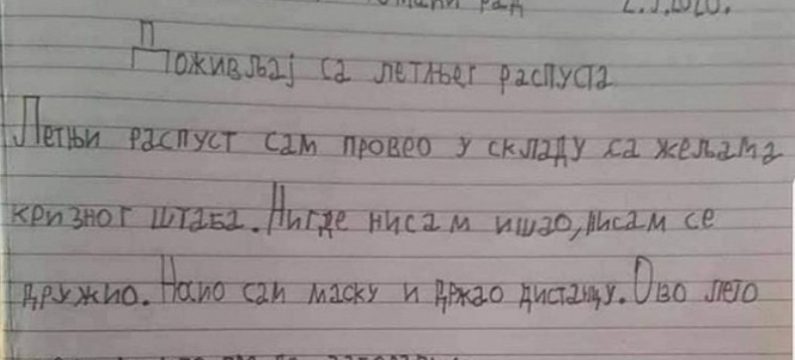 рад
Поживљај са летњег распуста
Летњи распуст сам провео у складу са жељама
кризног штаба. Нигде нисам ишао, нисам се
дружио. Носио сам маску и држао дистанцу. Ово лето